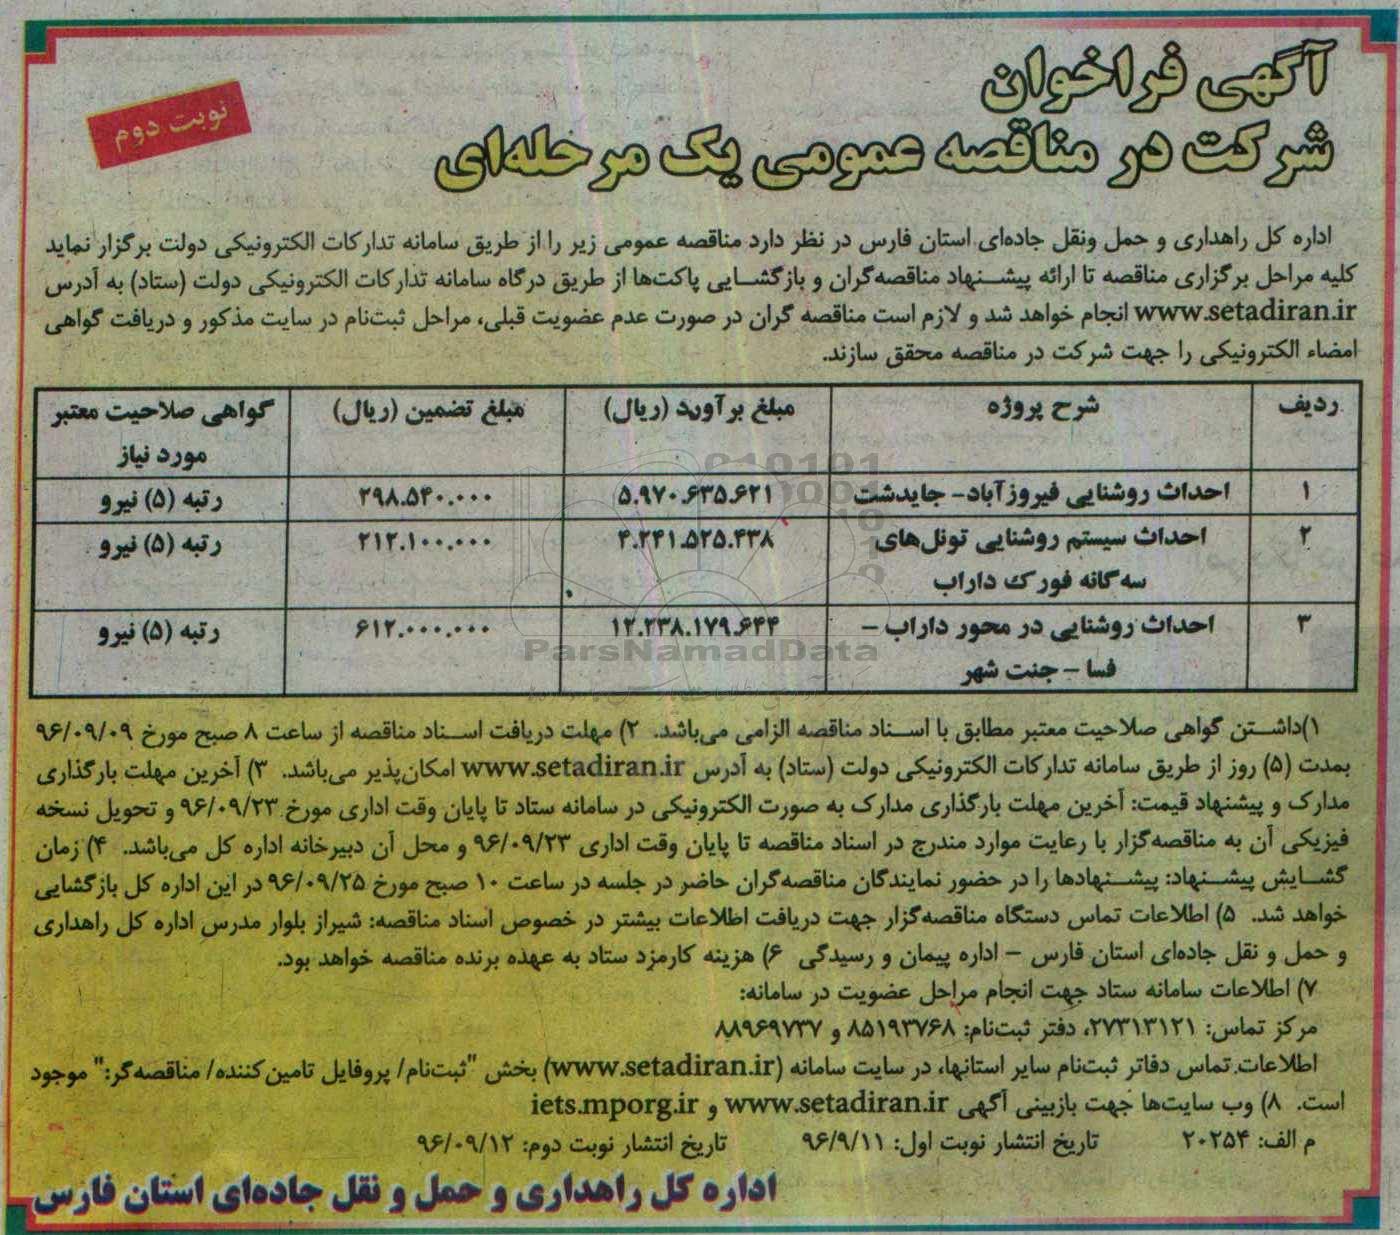 آگهی فراخوان
شرکت در مناقصه عمومی یک مرحله‌ای
نوبت دوم
اداره کل راهداری و حمل ونقل جاده‌ای استان فارس در نظر دارد مناقصه عمومی زیر را از طریق سامانه تدارکات الکترونیکی دولت برگزار نماید
کلیه مراحل برگزاری مناقصه تا ارائه پیشنهاد مناقصه‌گران و بازگشایی پاکت‌ها از طریق درگاه سامانه تدارکات الکترونیکی دولت (ستاد) به آدرس
www.setadiran.ir انجام خواهد شد و لازم است مناقصه گران در صورت عدم عضویت قبلی، مراحل ثبت‌نام در سایت مذکور و دریافت گواهی
امضاء الکترونیکی را جهت شرکت در مناقصه محقق سازند.
ردیف شرح پروژه مبلغ برآورد (ریال) مبلغ تضمین (ریال) گواهی صلاحیت معتبر
مورد نیاز
۱ احداث روشنایی فیروزآباد- جایدشت ۵.۹۷۰.۶۳۵.۶۲۱ ۲۹۸.۵۴۰.۰۰۰ رتبه (۵) نیرو
۲ احداث سیستم روشنایی تونل‌های ۴.۲۴۱.۵۲۵.۴۳۸ ۲۱۲.۱۰۰.۰۰۰ رتبه (۵) نیرو
سه گانه فورک داراب
۳ احداث روشنایی در محور داراب - ۱۲.۲۳۸.۱۷۹.۶۴۴ ۶۱۲.۰۰۰.۰۰۰ رتبه (۵) نیرو
فسا - جنت شهر
ParsNamadData
۱)داشتن گواهی صلاحیت معتبر مطابق با اسناد مناقصه الزامی می‌باشد. ۲) مهلت دریافت اسناد مناقصه از ساعت ۸ صبح مورخ ۹۶/۰۹/۰۹
بمدت (۵) روز از طریق سامانه تدارکات الکترونیکی دولت (ستاد) به آدرس www.setadiran.ir امکان‌پذیر می‌باشد. ۳) آخرین مهلت بارگذاری
مدارک و پیشنهاد قیمت: آخرین مهلت بارگذاری مدارک به صورت الکترونیکی در سامانه ستاد تا پایان وقت اداری مورخ ۹۶/۰۹/۲۳ و تحویل نسخه
فیزیکی آن به مناقصه‌گزار با رعایت موارد مندرج در اسناد مناقصه تا پایان وقت اداری ۹۶/۰۹/۲۳ و محل آن دبیرخانه اداره کل می‌باشد. ۴) زمان
گشایش پیشنهاد: پیشنهادها را در حضور نمایندگان مناقصه‌گران حاضر در جلسه در ساعت ۱۰ صبح مورخ ۹۶/۰۹/۲۵ در این اداره کل بازگشایی
خواهد شد. ۵) اطلاعات تماس دستگاه مناقصه‌گزار جهت دریافت اطلاعات بیشتر در خصوص اسناد مناقصه: شیراز بلوار مدرس اداره کل راهداری
و حمل و نقل جاده‌ای استان فارس – اداره پیمان و رسیدگی ۶) هزینه کارمزد ستاد به عهده برنده مناقصه خواهد بود.
۷) اطلاعات سامانه ستاد جهت انجام مراحل عضویت در سامانه:
مرکز تماس: ۲۷۳۱۳۱۲۱، دفتر ثبت‌نام: ۸۵۱۹۳۷۶۸ و ۸۸۹۶۹۷۳۷
اطلاعات تماس دفاتر ثبت‌نام سایر استانها، در سایت سامانه (www.setadiran.ir) بخش "ثبت‌نام/ پروفایل تامین‌کننده/ مناقصه‌گر:" موجود
است. ۸) وب سایت‌ها جهت بازبینی آگهی www.setadiran.ir و iets.mporg.ir
م الف: ۲۰۲۵۴ تاریخ انتشار نوبت اول: ۹۶/۹/۱۱ تاریخ انتشار نوبت دوم: ۹۶/۰۹/۱۲
اداره کل راهداری و حمل و نقل جاده‌ای استان فارس